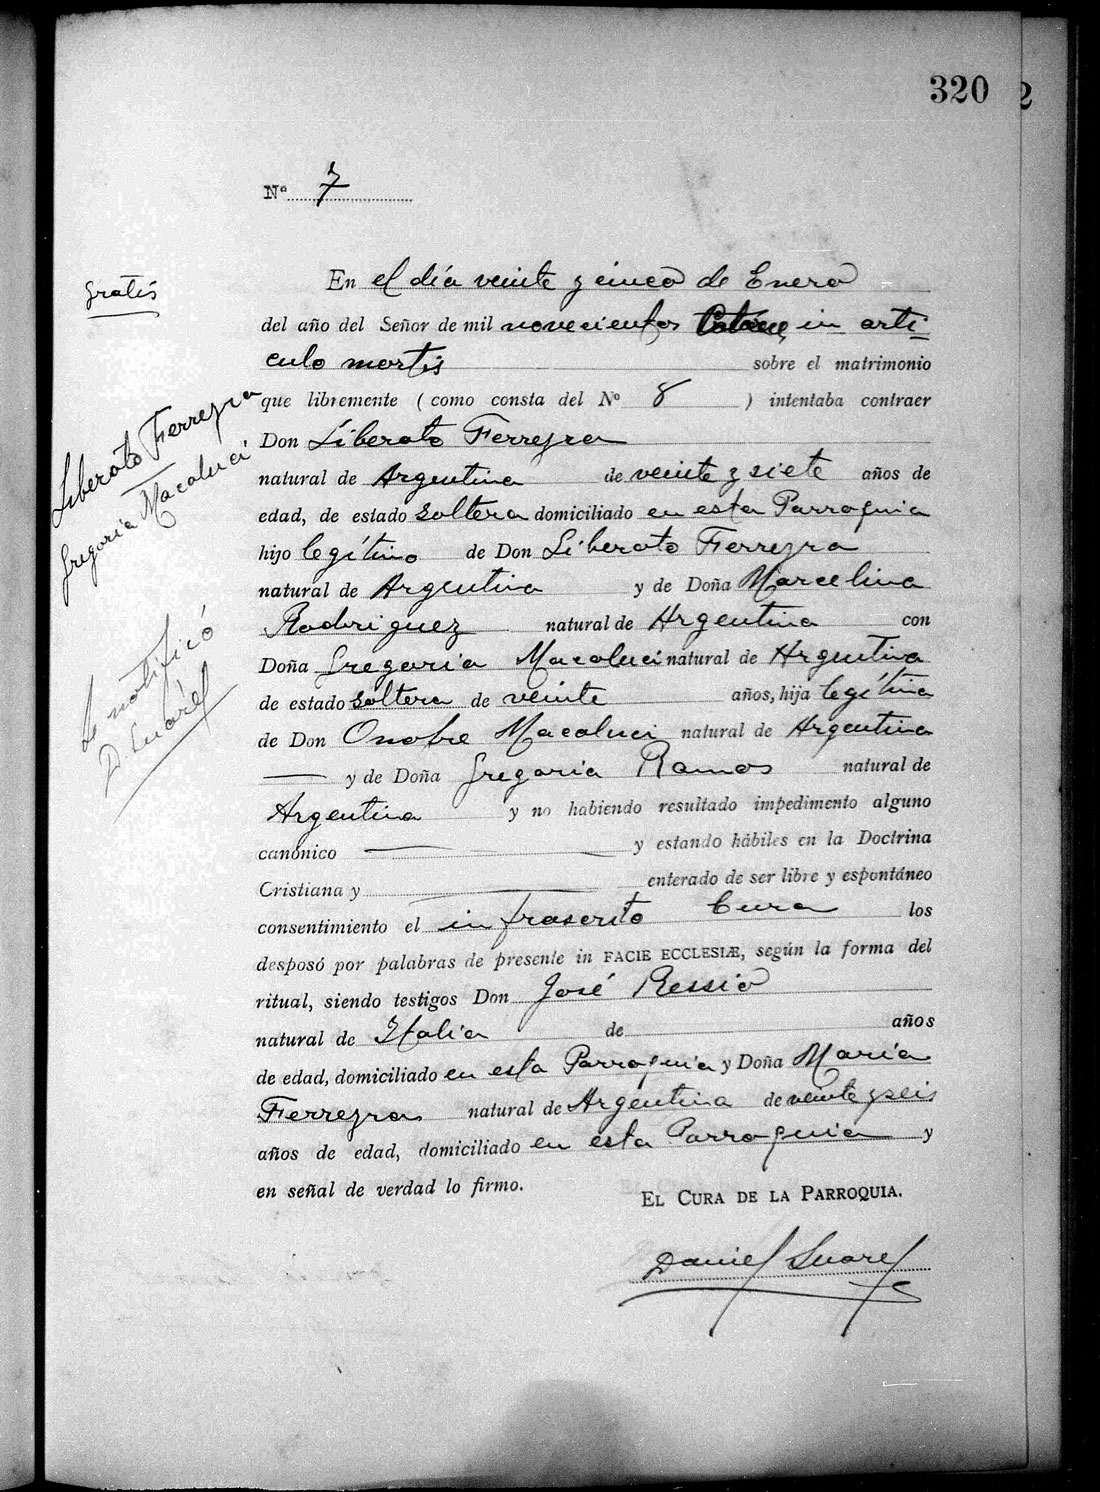 320
2
Nº 7
gratis
En el día veinte y cinco de Enero
del año del Señor de mil novecientos Catorce, in arti-
culo mortis sobre el matrimonio
que libremente (como consta del Nº 8 ) intentaba contraer
Don Liberato Ferreyra
natural de Argentina de veinte y siete años de
edad, de estado soltero domiciliado en esta Parroquia
hijo legítimo de Don Liberato Ferreyra
natural de Argentina y de Doña Marcelina
Rodriguez natural de Argentina con
Doña Gregoria Macaluci natural de Argentina
de estado soltera de veinte años, hija legítima
de Don Onofre Macaluci natural de Argentina
y de Doña Gregoria Ramos natural de
Argentina y no habiendo resultado impedimento alguno
canónico y estando hábiles en la Doctrina
Cristiana y enterado de ser libre y espontáneo
consentimiento el infrascrito Cura los
desposó por palabras de presente in FACIE ECCLESIÆ, según la forma del
ritual, siendo testigos Don José Ressio
natural de Italia de años
de edad, domiciliado en esta Parroquia y Doña María
Ferreyra natural de Argentina de veinte y seis
años de edad, domiciliado en esta Parroquia y
en señal de verdad lo firmo.
EL CURA DE LA PARROQUIA.
Daniel Suarez
Liberato Ferreyra
Gregoria Macaluci
Se notificó
D. Suárez